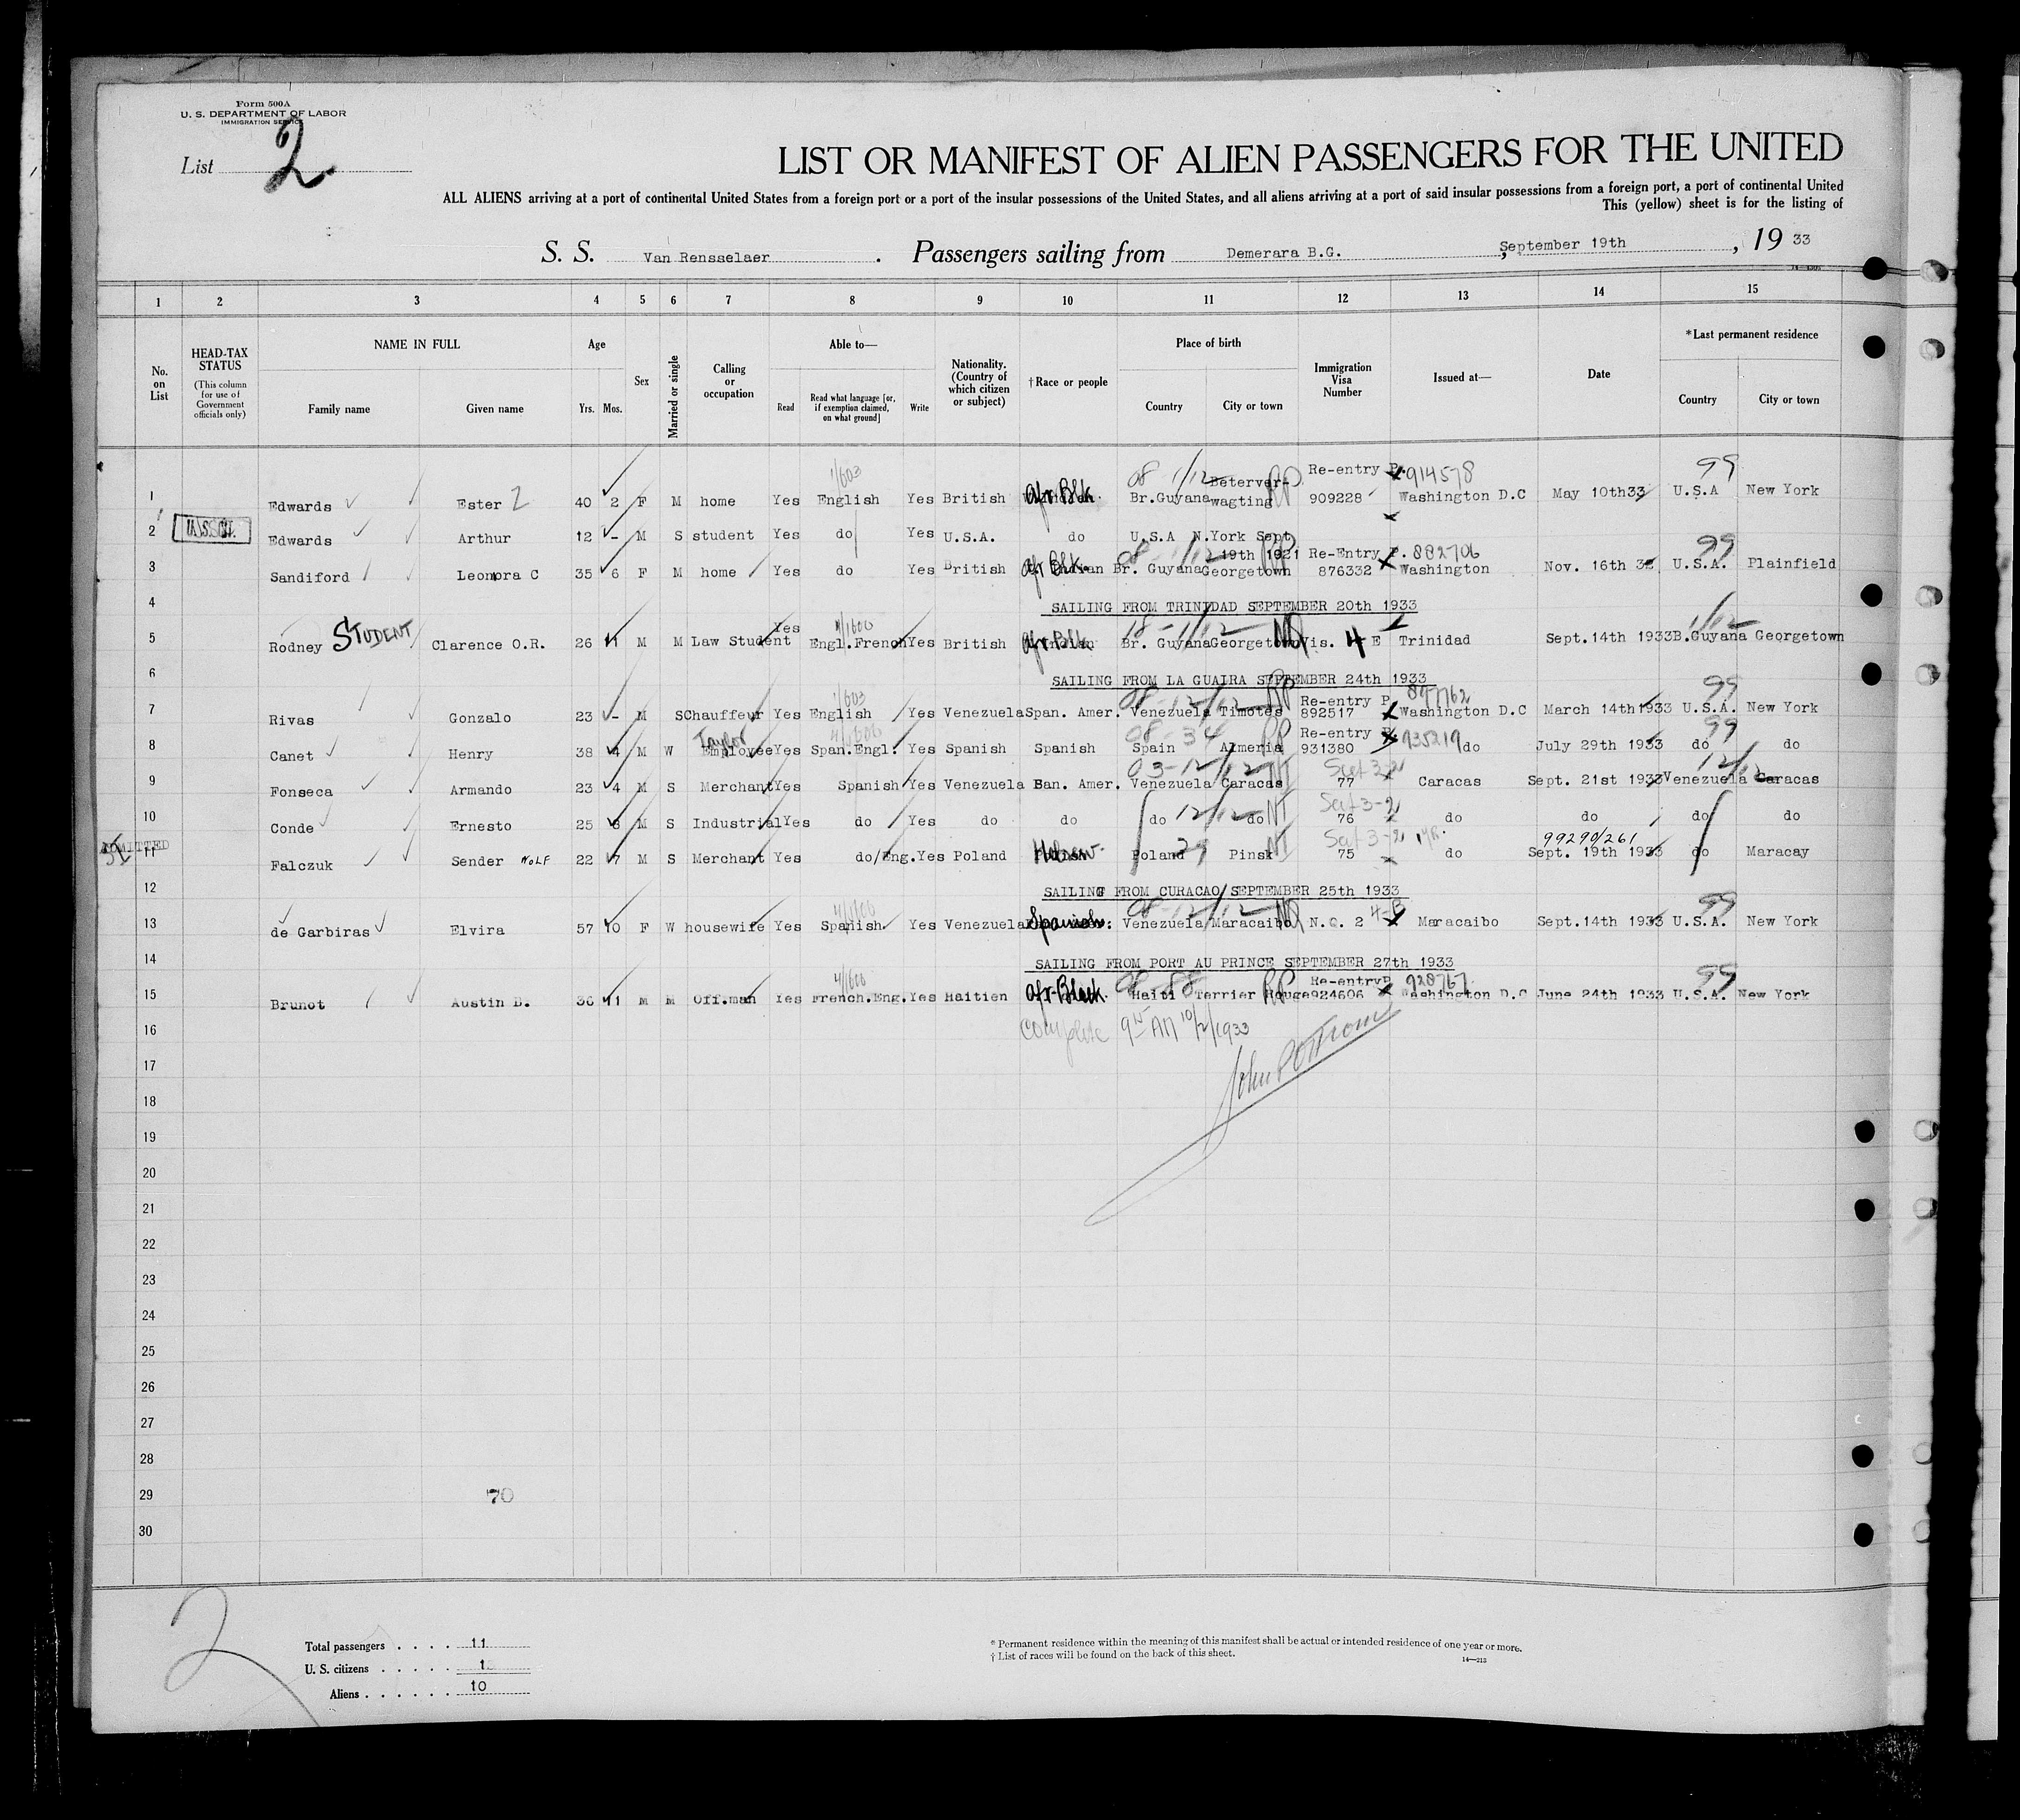 Form 500A
U. S. DEPARTMENT OF LABOR
IMMIGRATION SERVICE
List 2
LIST OR MANIFEST OF ALIEN PASSENGERS FOR THE UNITED
ALL ALIENS arriving at a port of continental United States from a foreign port or a port of the insular possessions of the United States, and all aliens arriving at a port of said insular possessions from a foreign port, a port of continental United
This (yellow) sheet is for the listing of
S. S. Van Rensselaer. Passengers sailing from Demerara B.G. September 19th, 19 33
1 2 3 4 5 6 7 8 9 10 11 12 13 14 15
No. on List
HEAD-TAX STATUS (This column for use of Government officials only)
NAME IN FULL Family name Given name
Age Yrs. Mos.
Sex
Married or single
Calling or occupation
Able to— Read Read what language [or, if exemption claimed, on what ground] Write
Nationality. (Country of which citizen or subject)
†Race or people
Place of birth Country City or town
Immigration Visa Number
Issued at—
Date
*Last permanent residence Country City or town
1 Edwards Ester 2 40 2 F M home Yes English 1/603 Yes British Afr. Blk. 08 1/12 Br.Guyana Beterver-wagting RP Re-entry P. 909228 914578 Washington D.C May 10th33 99 U.S.A New York
2 Edwards Arthur 12 - M S student Yes do Yes U.S.A. do U.S.A N.York Sept. 19th 1921
3 Sandiford Leonora C 35 6 F M home Yes do Yes British Afr Blk. 08 1/12 Br. Guyana Georgetown RP Re-Entry P. 876332 882706 Washington Nov. 16th 99 U.S.A. Plainfield
4 SAILING FROM TRINIDAD SEPTEMBER 20th 1933
5 Rodney STUDENT Clarence O.R. 26 11 M M Law Student Yes Engl.French Yes British Afr Blk. 18-1/12 Br. Guyana Georgetown Vis. 4 E Trinidad Sept.14th 1933 1/12 B.Guyana Georgetown
6 SAILING FROM LA GUAIRA SEPTEMBER 24th 1933
7 Rivas Gonzalo 23 - M S Chauffeur Yes English 1/603 Yes Venezuela Span. Amer. 08-12/12 Venezuela Timotes RP Re-entry P. 892517 897762 Washington D.C March 14th 1933 99 U.S.A. New York
8 Canet Henry 38 4 M W Taylor Employee Yes Span.Engl. Yes Spanish Spanish 08-34 Spain Almeria RP Re-entry P. 931380 935219 do July 29th 1933 99 do do
9 Fonseca Armando 23 4 M S Merchant Yes Spanish Yes Venezuela an. Amer. 03-12/12 Venezuela Caracas NI 77 Caracas Sept. 21st 1933 12/12 Venezuela Caracas
10 Conde Ernesto 25 8 M S Industrial Yes do Yes do do do 12/12 do NI 76 do do do do
ADMITTED
11 Falczuk Sender WOLF 22 7 M S Merchant Yes do/Eng. Yes Poland Hebrew Poland 29 Pinsk NI 75 1 yr. do 99290/261 Sept. 19th 1933 do Maracay
12 SAILING FROM CURACAO SEPTEMBER 25th 1933
13 de Garbiras Elvira 57 10 F W housewife Yes Spanish Yes Venezuela Spanish 08-12/12 Venezuela Maracaibo N.Q. 2 4-B Maracaibo Sept.14th 1933 99 U.S.A. New York
14 SAILING FROM PORT AU PRINCE SEPTEMBER 27th 1933
15 Brunot Austin B. 36 11 M M Off.man Yes French.Eng. 4/1606 Yes Haitien Afr-Black. 08-88 Haiti Terrier Rouge RP Re-entry P. 924606 928767 Washington D.C June 24th 1933 99 U.S.A. New York
16 Complete 9 15 AM 10/2/1933
17
18
19
20
21
22
23
24
25
26
27
28
29 70
30
2
Total passengers . . . . 11
U. S. citizens . . . . . 1
Aliens . . . . . . 10
* Permanent residence within the meaning of this manifest shall be actual or intended residence of one year or more.
† List of races will be found on the back of this sheet.
14—213